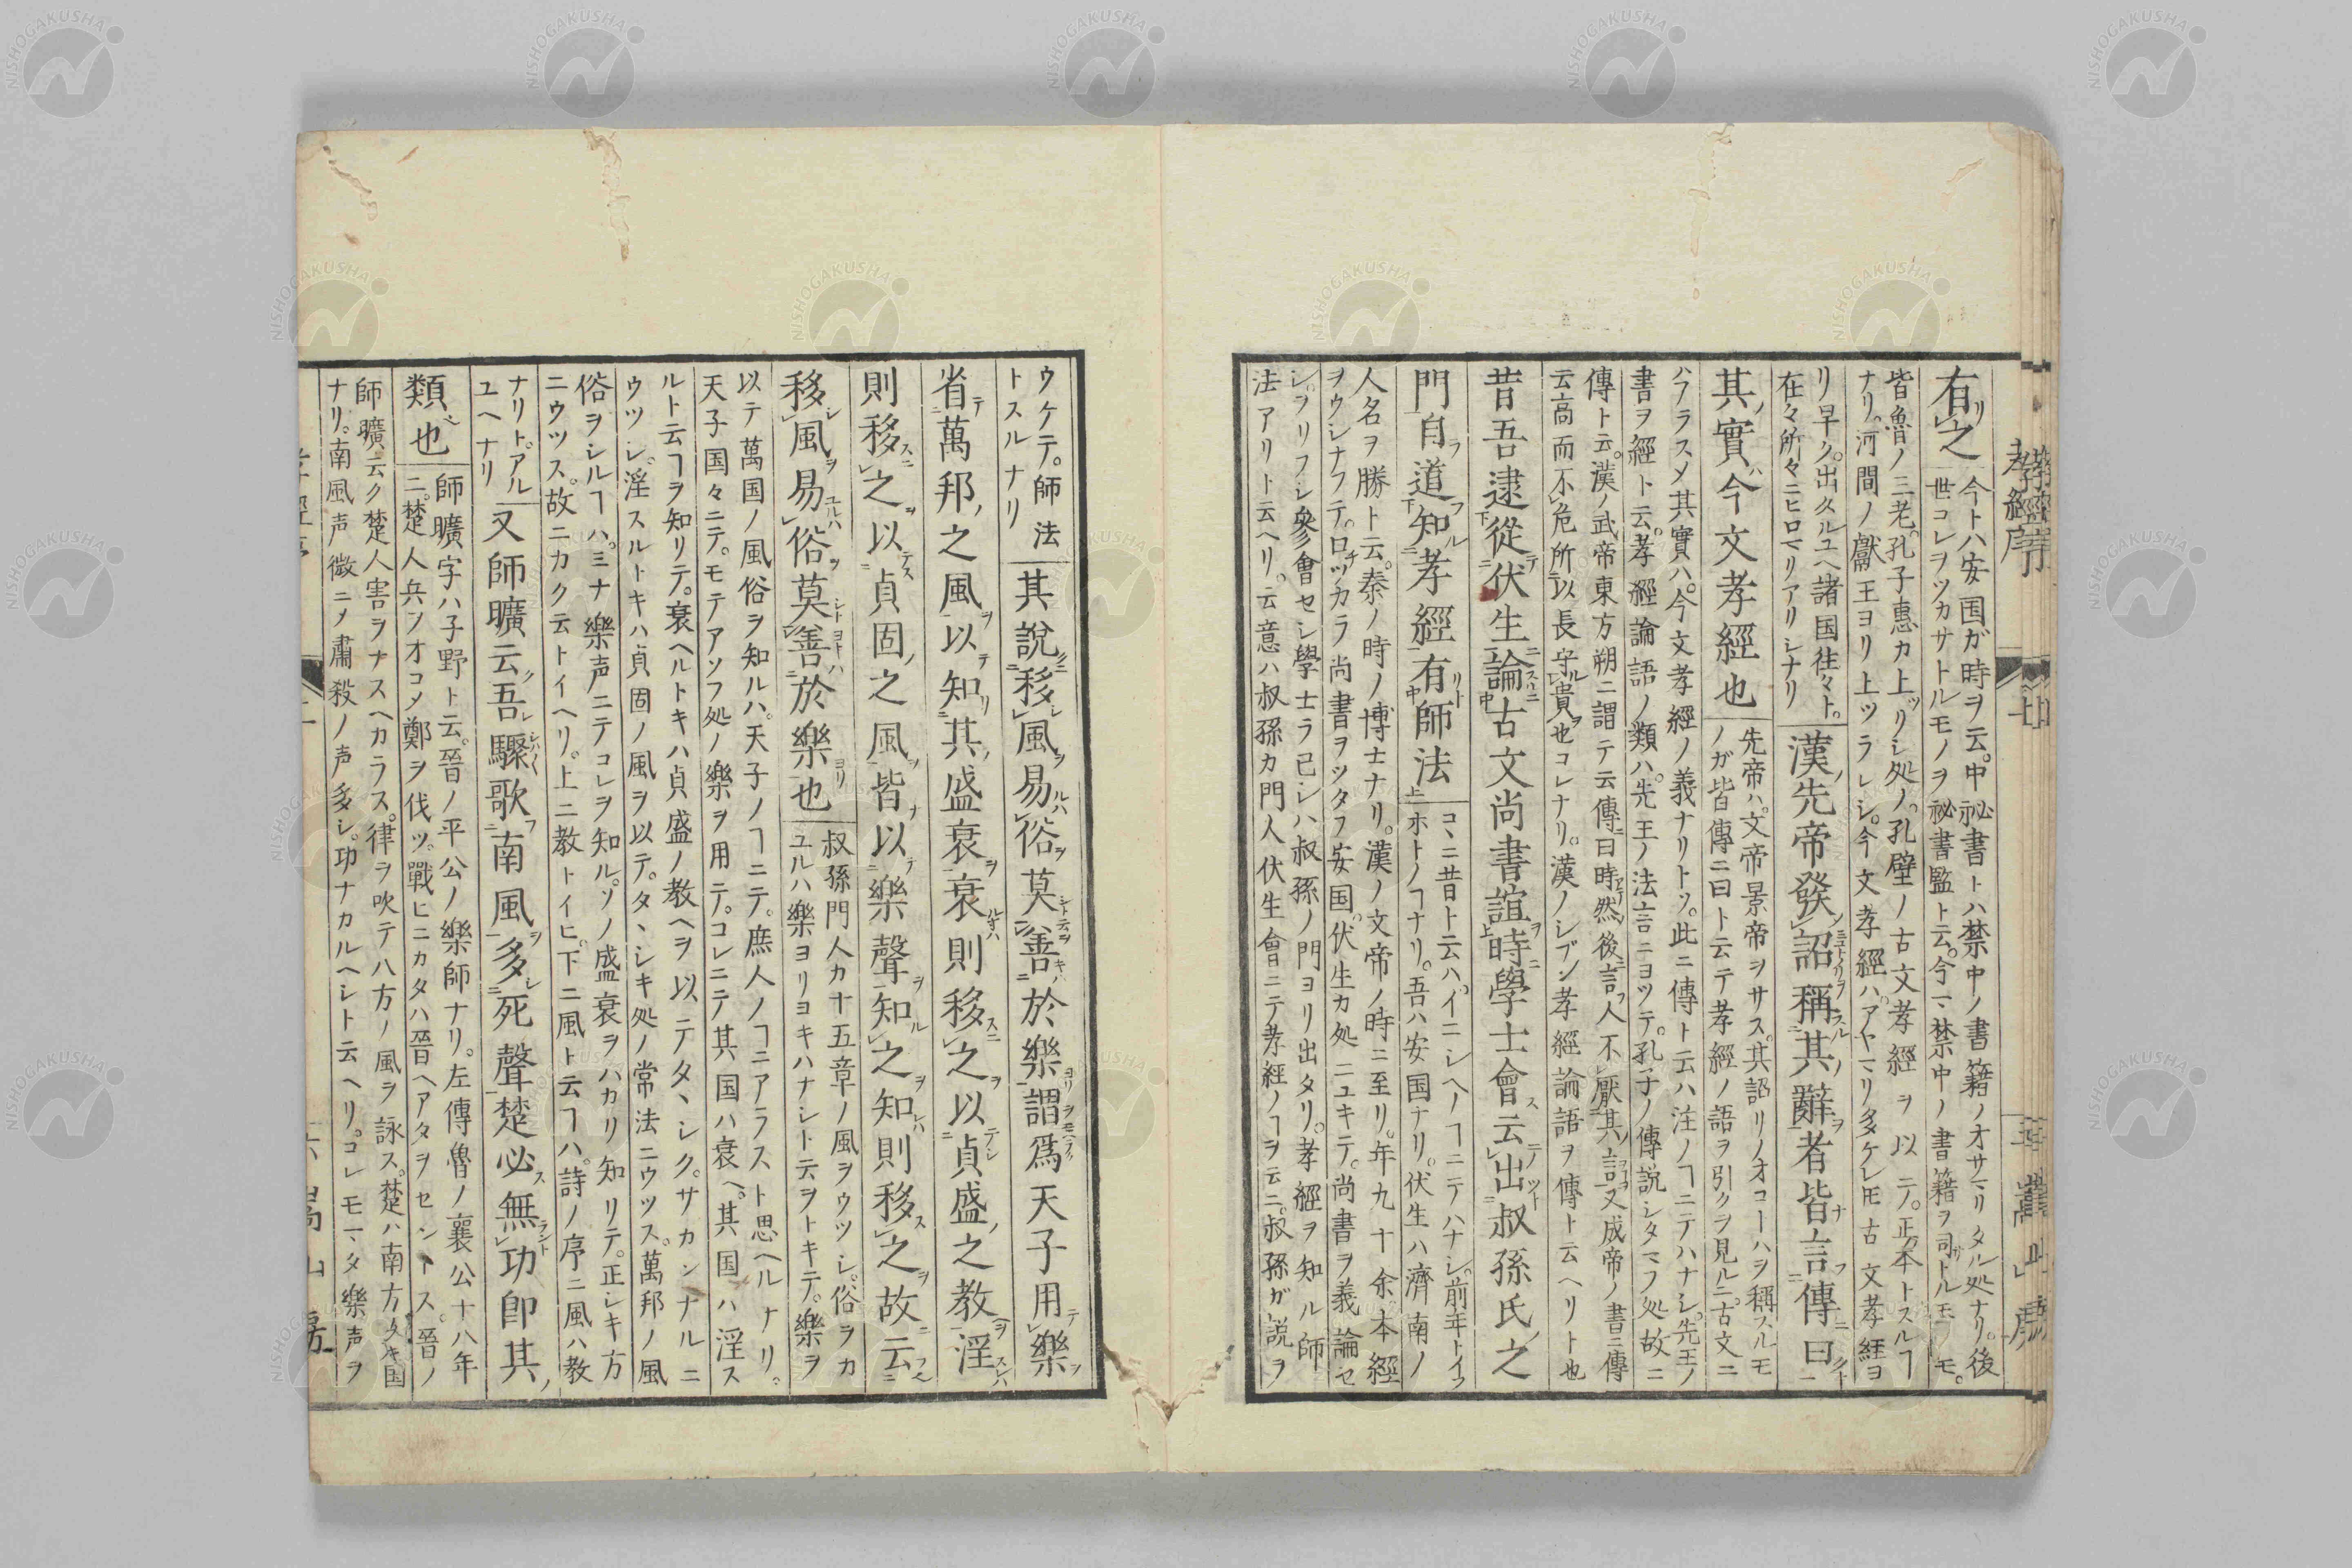 有之
今トハ安国ガ時ヲ云。中祕書トハ禁中ノ書籍ノオサマリタル処ナリ。後
世コレヲツカサトルモノヲ祕書監ト云。今マ禁中ノ書籍ヲ司トルモノモ。
皆魯ノ三老。孔子惠カ上ツリシ処ノ。孔壁ノ古文孝經ヲ以テ。正本トスルヿ
ナリ。河間ノ獻王ヨリ上ツラレシ。今文孝經ハ。アヤマリ多ケレ𪜈古文孝經ヨ
リ早ク。出タルユヘ諸国往々ト。
在々所々ニヒロマリアリシナリ
漢先帝發詔稱其辭者皆言傳曰
其實今文孝經也
先帝ハ。文帝景帝ヲサス。其詔リノオコーハヲ稱スルモ
ノガ皆傳ニ曰ト云テ孝經ノ語ヲ引クヲ見ルニ。古文ニ
ハアラスメ其實ハ。今文孝經ノ義ナリトソ。此ニ傳ト云ハ注ノヿニテハナシ。先王ノ
書ヲ經ト云。孝經論語ノ類ハ。先王ノ法言ニヨツテ。孔子ノ傳説シタマフ処故ニ
傳ト云。漢ノ武帝東方朔ニ謂テ云傳曰時然後言人不厭其言又成帝ノ書ニ傳
云高而不危所以長守貴也コレナリ。漢ノシブン孝經論語ヲ傳ト云ヘリト也
昔吾逮從伏生論古文尚書誼時學士會云出叔孫氏之
門自道知孝經有師法
コヽニ昔ト云ハ。イニシヘノヿニテハナシ。前年トイフ
ホトノヿナリ。吾ハ安国ナリ。伏生ハ濟南ノ
人名ヲ勝ト云。秦ノ時ノ博士ナリ。漢ノ文帝ノ時ニ至リ。年九十余本經
ヲウシナフテ。口ツカラ尚書ヲツタフ安国。伏生カ処ニユキテ。尚書ヲ義論セ
シ。ヲリフシ參會セシ學士ラ已シハ叔孫ノ門ヨリ出タリ。孝經ヲ知ル師
法アリト云ヘリ。云意ハ叔孫カ門人伏生會ニテ孝経ノヿヲ云ニ。叔孫ガ説ヲ
ウケテ。師法
トスルナリ
其說移風易俗莫善於樂謂爲天子用樂
省萬邦之風以知其盛衰衰則移之以貞盛之教淫
則移之以貞固之風皆以樂聲知之知則移之故云
移風易俗莫善於樂也
叔孫門人カ十五章ノ風ヲウツシ。俗ヲカ
ユルハ樂ヨリヨキハナシト云ヲトキテ。樂ヲ
以テ萬国ノ風俗ヲ知ルハ。天子ノヿニテ。庶人ノヿニアラスト思ヘルナリ。
天子国々ニテ。モテアソフ処ノ樂ヲ用テ。コレニテ其国ハ衰ヘ。其国ハ淫ス
ルト云ヿヲ知リテ。衰ヘルトキハ貞盛ノ教ヘヲ以テタヽシク。サカンナルニ
ウツシ。淫スルトキハ貞固ノ風ヲ以テ。タヽシキ処ノ常法ニウツス。萬邦ノ風
俗ヲシルヿハ。ミナ樂声ニテコレヲ知ル。ソノ盛衰ヲハカリ知リテ。正シキ方
ニウツス。故ニカク云トイヘリ。上ニ教トイヒ。下ニ風ト云ヿハ。詩ノ序ニ風ハ教
ナリト。アル
ユヘナリ
又師曠云吾驟歌南風多死聲楚必無功卽其
類也
師曠字ハ子野ト云。晉ノ平公ノ樂師ナリ。左傳魯ノ襄公十八年
ニ。楚人兵ヲオコメ鄭ヲ伐ツ。戰ヒニカタハ晉ヘアタヲセントス。晉ノ
師曠云ク楚人害ヲナスヘカラス。律ヲ吹テ八方ノ風ヲ詠ス。楚ハ南方タキ国
ナリ。南風声微ニメ肅殺ノ声多シ。功ナカルヘシト云ヘリ。コレモマタ樂声ヲ